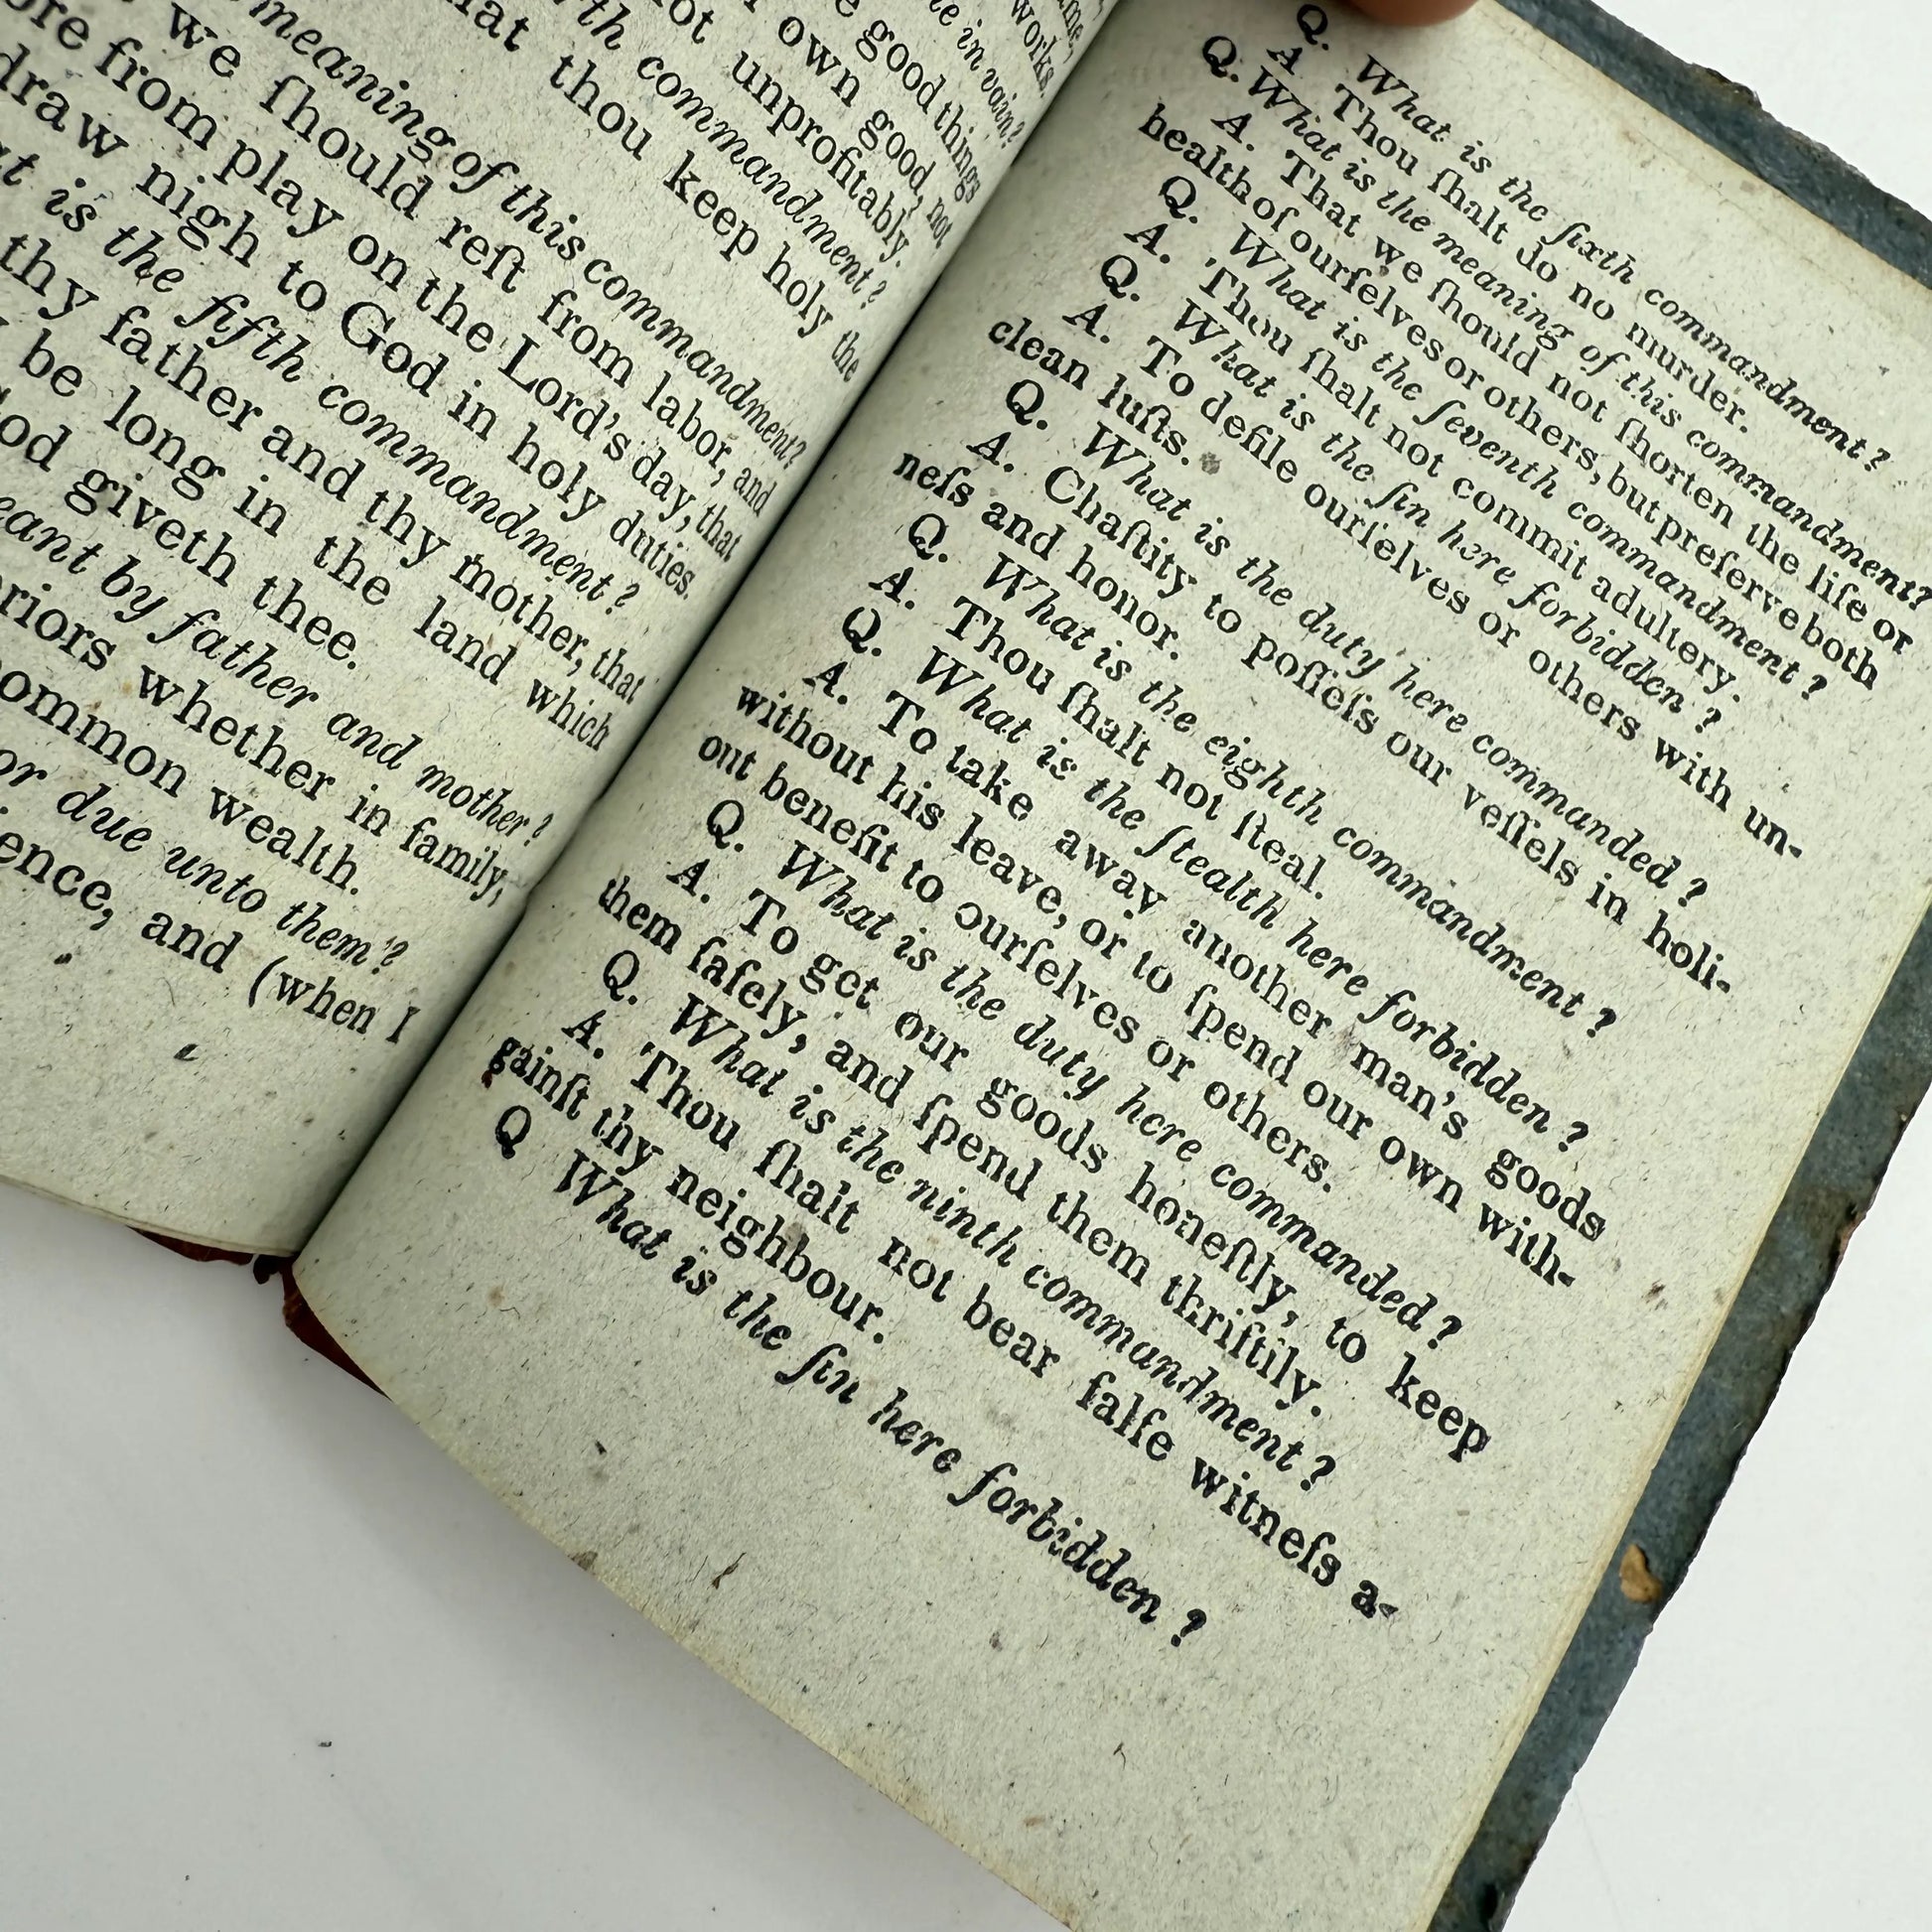 me,
works.
te in vain?
e good things
own good, not
ot unprofitably.
rth commandment?
hat thou keep holy the
meaning of this commandment?
we ſhould reſt from labor, and
ore from play on the Lord's day, that
draw nigh to God in holy duties.
at is the fifth commandment?
thy father and thy mother, that
be long in the land which
od giveth thee.
eant by father and mother?
riors whether in family,
ommon wealth.
or due unto them?
ence, and (when I
Q. What is the ſixth commandment?
A Thou ſhalt do no murder.
Q. What is the meaning of this commandment?
A. That we ſhould not ſhorten the life or
health of ourſelves or others, but preſerve both
Q. What is the ſeventh commandment?
A. Thou ſhalt not commit adultery.
Q. What is the ſin here forbidden?
A. To defile ourſelves or others with un-
clean luſts.
Q. What is the duty here commanded?
A. Chaſtity to poſſeſs our veſſels in holi-
neſs and honor.
Q. What is the eighth commandment?
A. Thou ſhalt not ſteal.
Q. What is the ſtealth here forbidden?
A. To take away another man's goods
without his leave, or to ſpend our own with-
out benefit to ourſelves or others.
Q. What is the duty here commanded?
A. To get our goods honeſtly, to keep
them ſafely, and ſpend them thriftily.
Q. What is the ninth commandment?
A. Thou ſhalt not bear falſe witneſs a-
gainſt thy neighbour.
Q What is the ſin here forbidden?